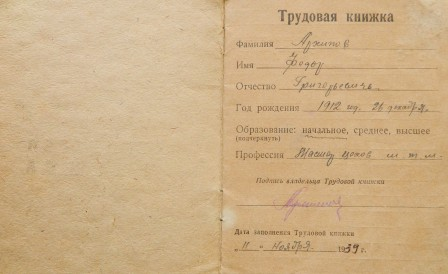 Трудовая книжка
Фамилия Архипов
Имя Федор
Отчество Григорьевич
Год рождения 1912 год. 26 декабря
Образование: начальное, среднее, высшее
(подчеркнуть)
Профессия
Подпись владельца Трудовой книжки
Дата заполнения Трудовой книжки
11 " ноября 1939 г.